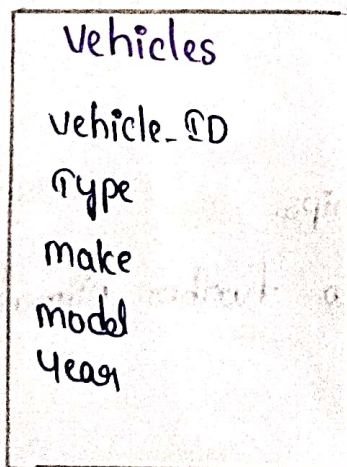 Vehicles
Vehicle_ID
Type
Make
Model
Year